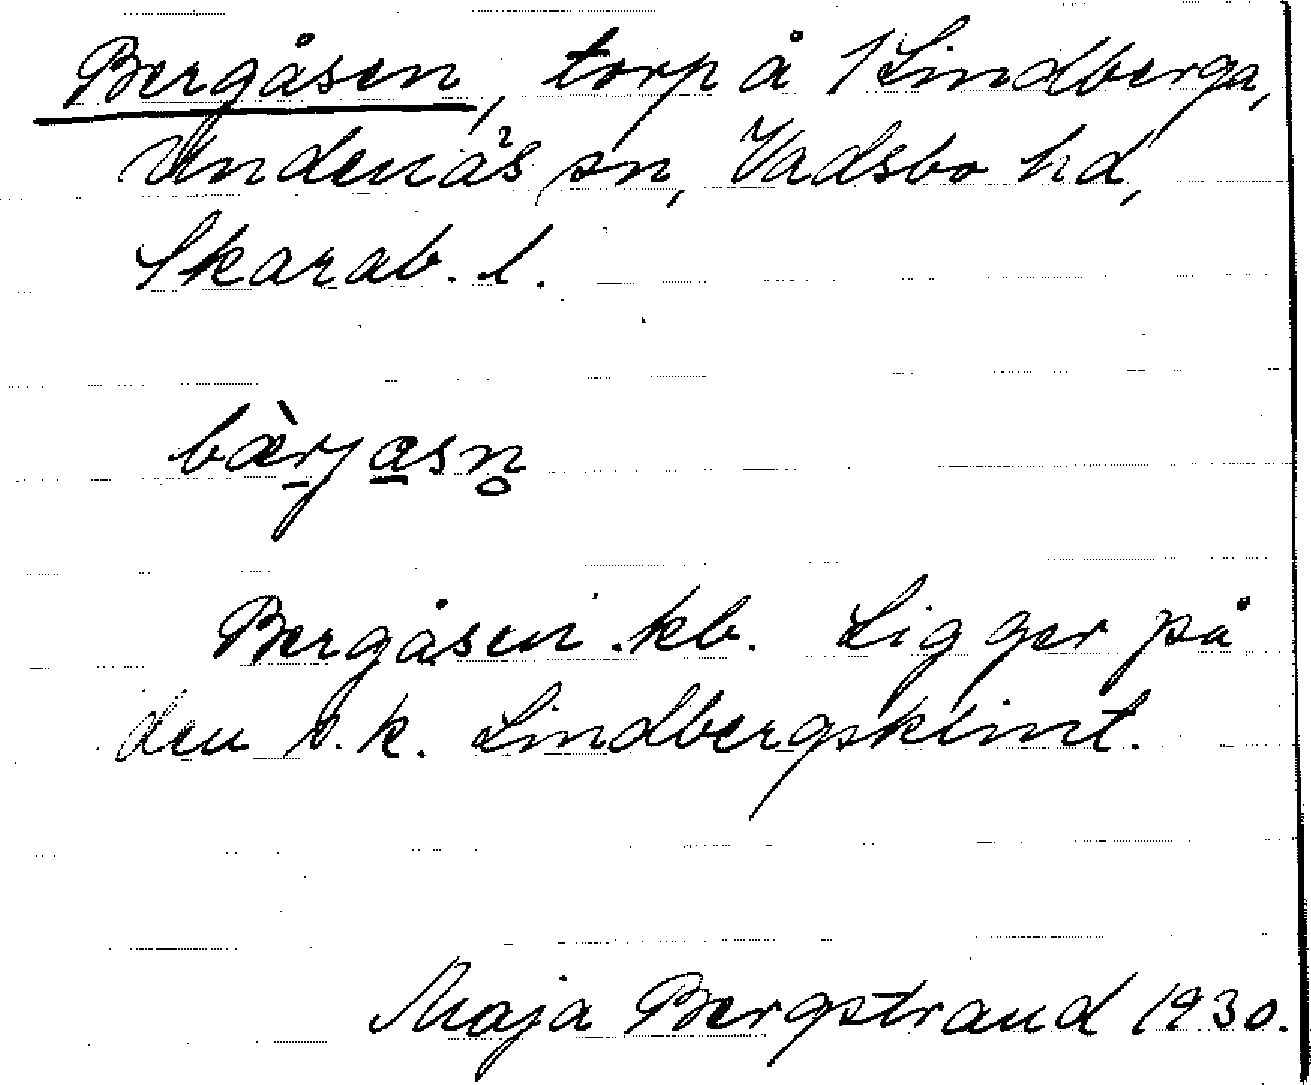 Bergåsen, torp å 1 Lindberga,
Undenäs sn, Vadsbo hd,
Skarab. l.
bæ̀rjasn̥
Bergåsen kb. Ligger på
den s.k. Lindbergsklint.
Maja Bergstrand 1930.